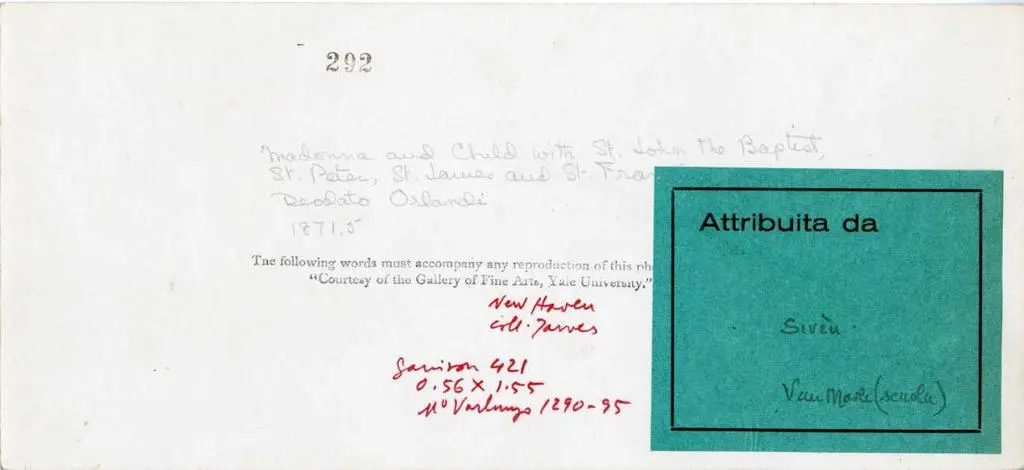 292
Madonna and Child with St. John the Baptist,
St. Peter, St. James and St. Fra
Deodato Orlandi
1871.5
The following words must accompany any reproduction of this ph
"Courtesy of the Gallery of Fine Arts, Yale University."
New Haven
Coll. Jarves
Garrison 421
0.56 X 1.55
1290-95
Attribuita da
Sirèn
Van Marle (scuola)